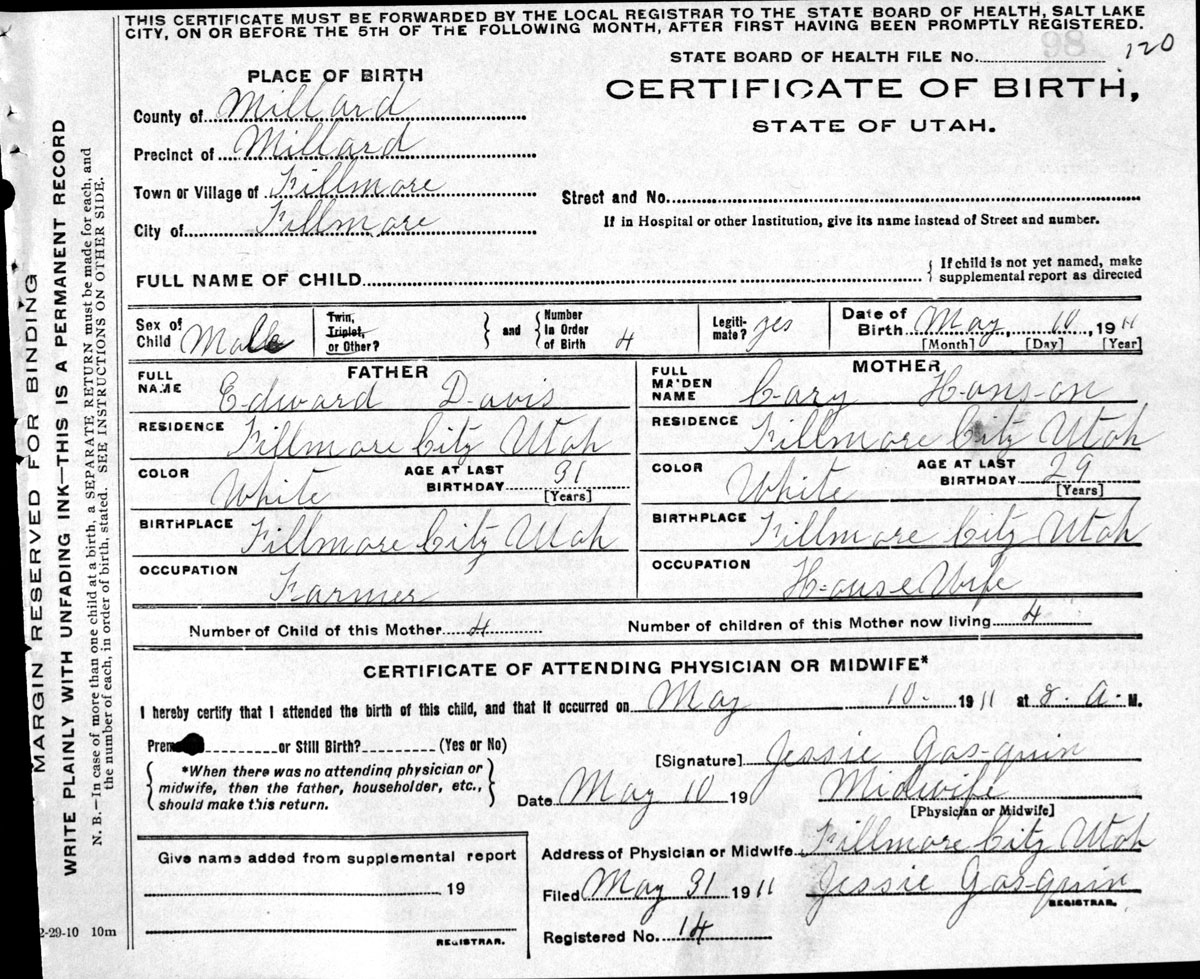 THIS CERTIFICATE MUST BE FORWARDED BY THE LOCAL REGISTRAR TO THE STATE BOARD OF HEALTH, SALT LAKE
CITY, ON OR BEFORE THE 5TH OF THE FOLLOWING MONTH, AFTER FIRST HAVING BEEN PROMPTLY REGISTERED.
98
STATE BOARD OF HEALTH FILE No. 120
CERTIFICATE OF BIRTH,
STATE OF UTAH.
PLACE OF BIRTH
County of Millard
Precinct of Millard
Town or Village of Fillmore
City of Fillmore
Street and No.
If in Hospital or other Institution, give its name instead of Street and number.
FULL NAME OF CHILD
{ If child is not yet named, make
supplemental report as directed
Sex of Child Male
Twin, Triplet, or Other? } and { Number in Order of Birth 4
Legitimate? yes
Date of Birth May, 10, 1911
[Month] [Day] [Year]
FATHER
FULL NAME Edward Davis
RESIDENCE Fillmore City Utah
COLOR White AGE AT LAST BIRTHDAY 31 [Years]
BIRTHPLACE Fillmore City Utah
OCCUPATION Farmer
MOTHER
FULL MAIDEN NAME Cary Hanson
RESIDENCE Fillmore City Utah
COLOR White AGE AT LAST BIRTHDAY 29 [Years]
BIRTHPLACE Fillmore City Utah
OCCUPATION House Wife
Number of Child of this Mother 4 Number of children of this Mother now living 4
CERTIFICATE OF ATTENDING PHYSICIAN OR MIDWIFE*
I hereby certify that I attended the birth of this child, and that it occurred on May 10- 1911 at 8. A. M.
Prem or Still Birth? (Yes or No)
{ *When there was no attending physician or
midwife, then the father, householder, etc.,
should make this return. }
[Signature] Jessie Gasquin
Date May 10 19 Midwife
[Physician or Midwife]
Address of Physician or Midwife Fillmore City Utah
Filed May 31 1911 Jessie Gasquin
REGISTRAR.
Registered No. 14
Give name added from supplemental report
19
REGISTRAR.
2-29-10 10m
MARGIN RESERVED FOR BINDING
WRITE PLAINLY WITH UNFADING INK—THIS IS A PERMANENT RECORD
N. B.—In case of more than one child at a birth, a SEPARATE RETURN must be made for each, and
the number of each, in order of birth, stated. SEE INSTRUCTIONS ON OTHER SIDE.